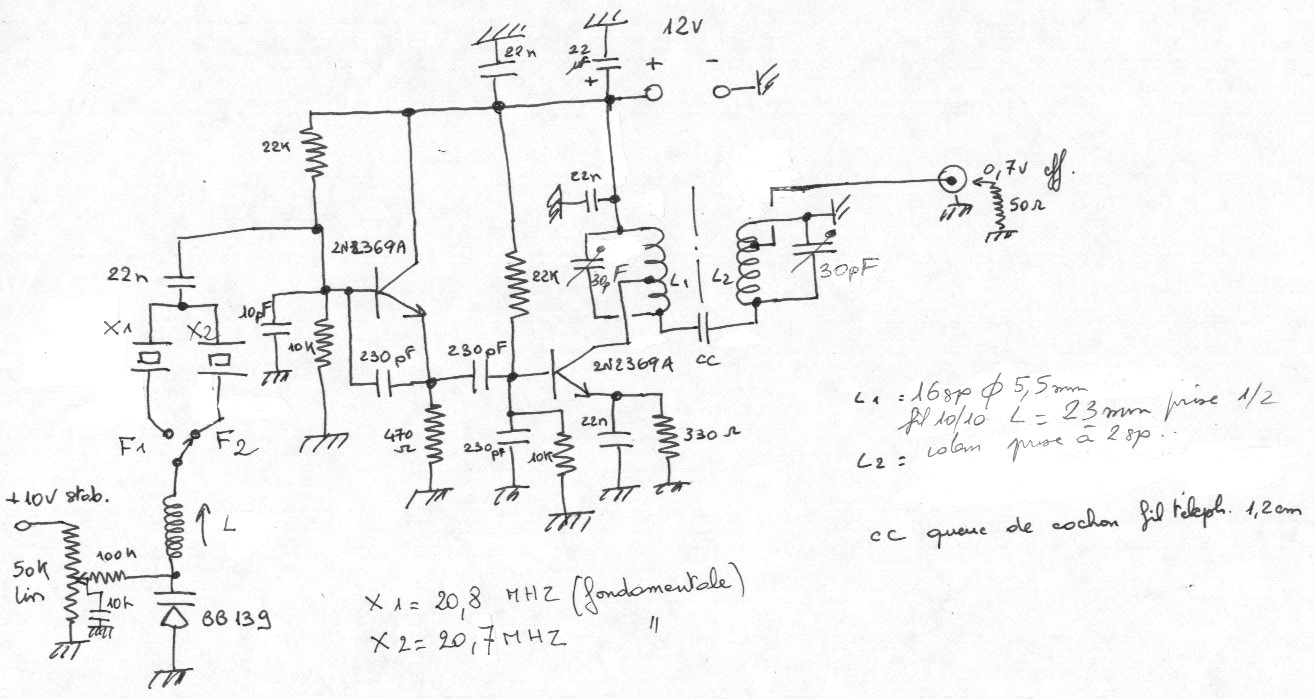 12V
22n
22
µF
+
+ -
22K
22n
0,7V eff.
50Ω
2N2369A
22n
22K
30pF
L1
L2
30pF
10pF
X1 X2
10K
230pF
230pF
2N2369A
CC
L1 = 16sp ϕ 5,5mm
fil 10/10 L = 23mm prise 1/2
L2 = idem prise à 2sp..
F1 F2
470
Ω
230pF
10K
22n
330Ω
+10V stab.
L
cc queue de cochon fil téléph. 1,2cm
50K
lin
100K
10n
BB139
X1 = 20,8 MHZ (fondamentale)
X2 = 20,7 MHZ "